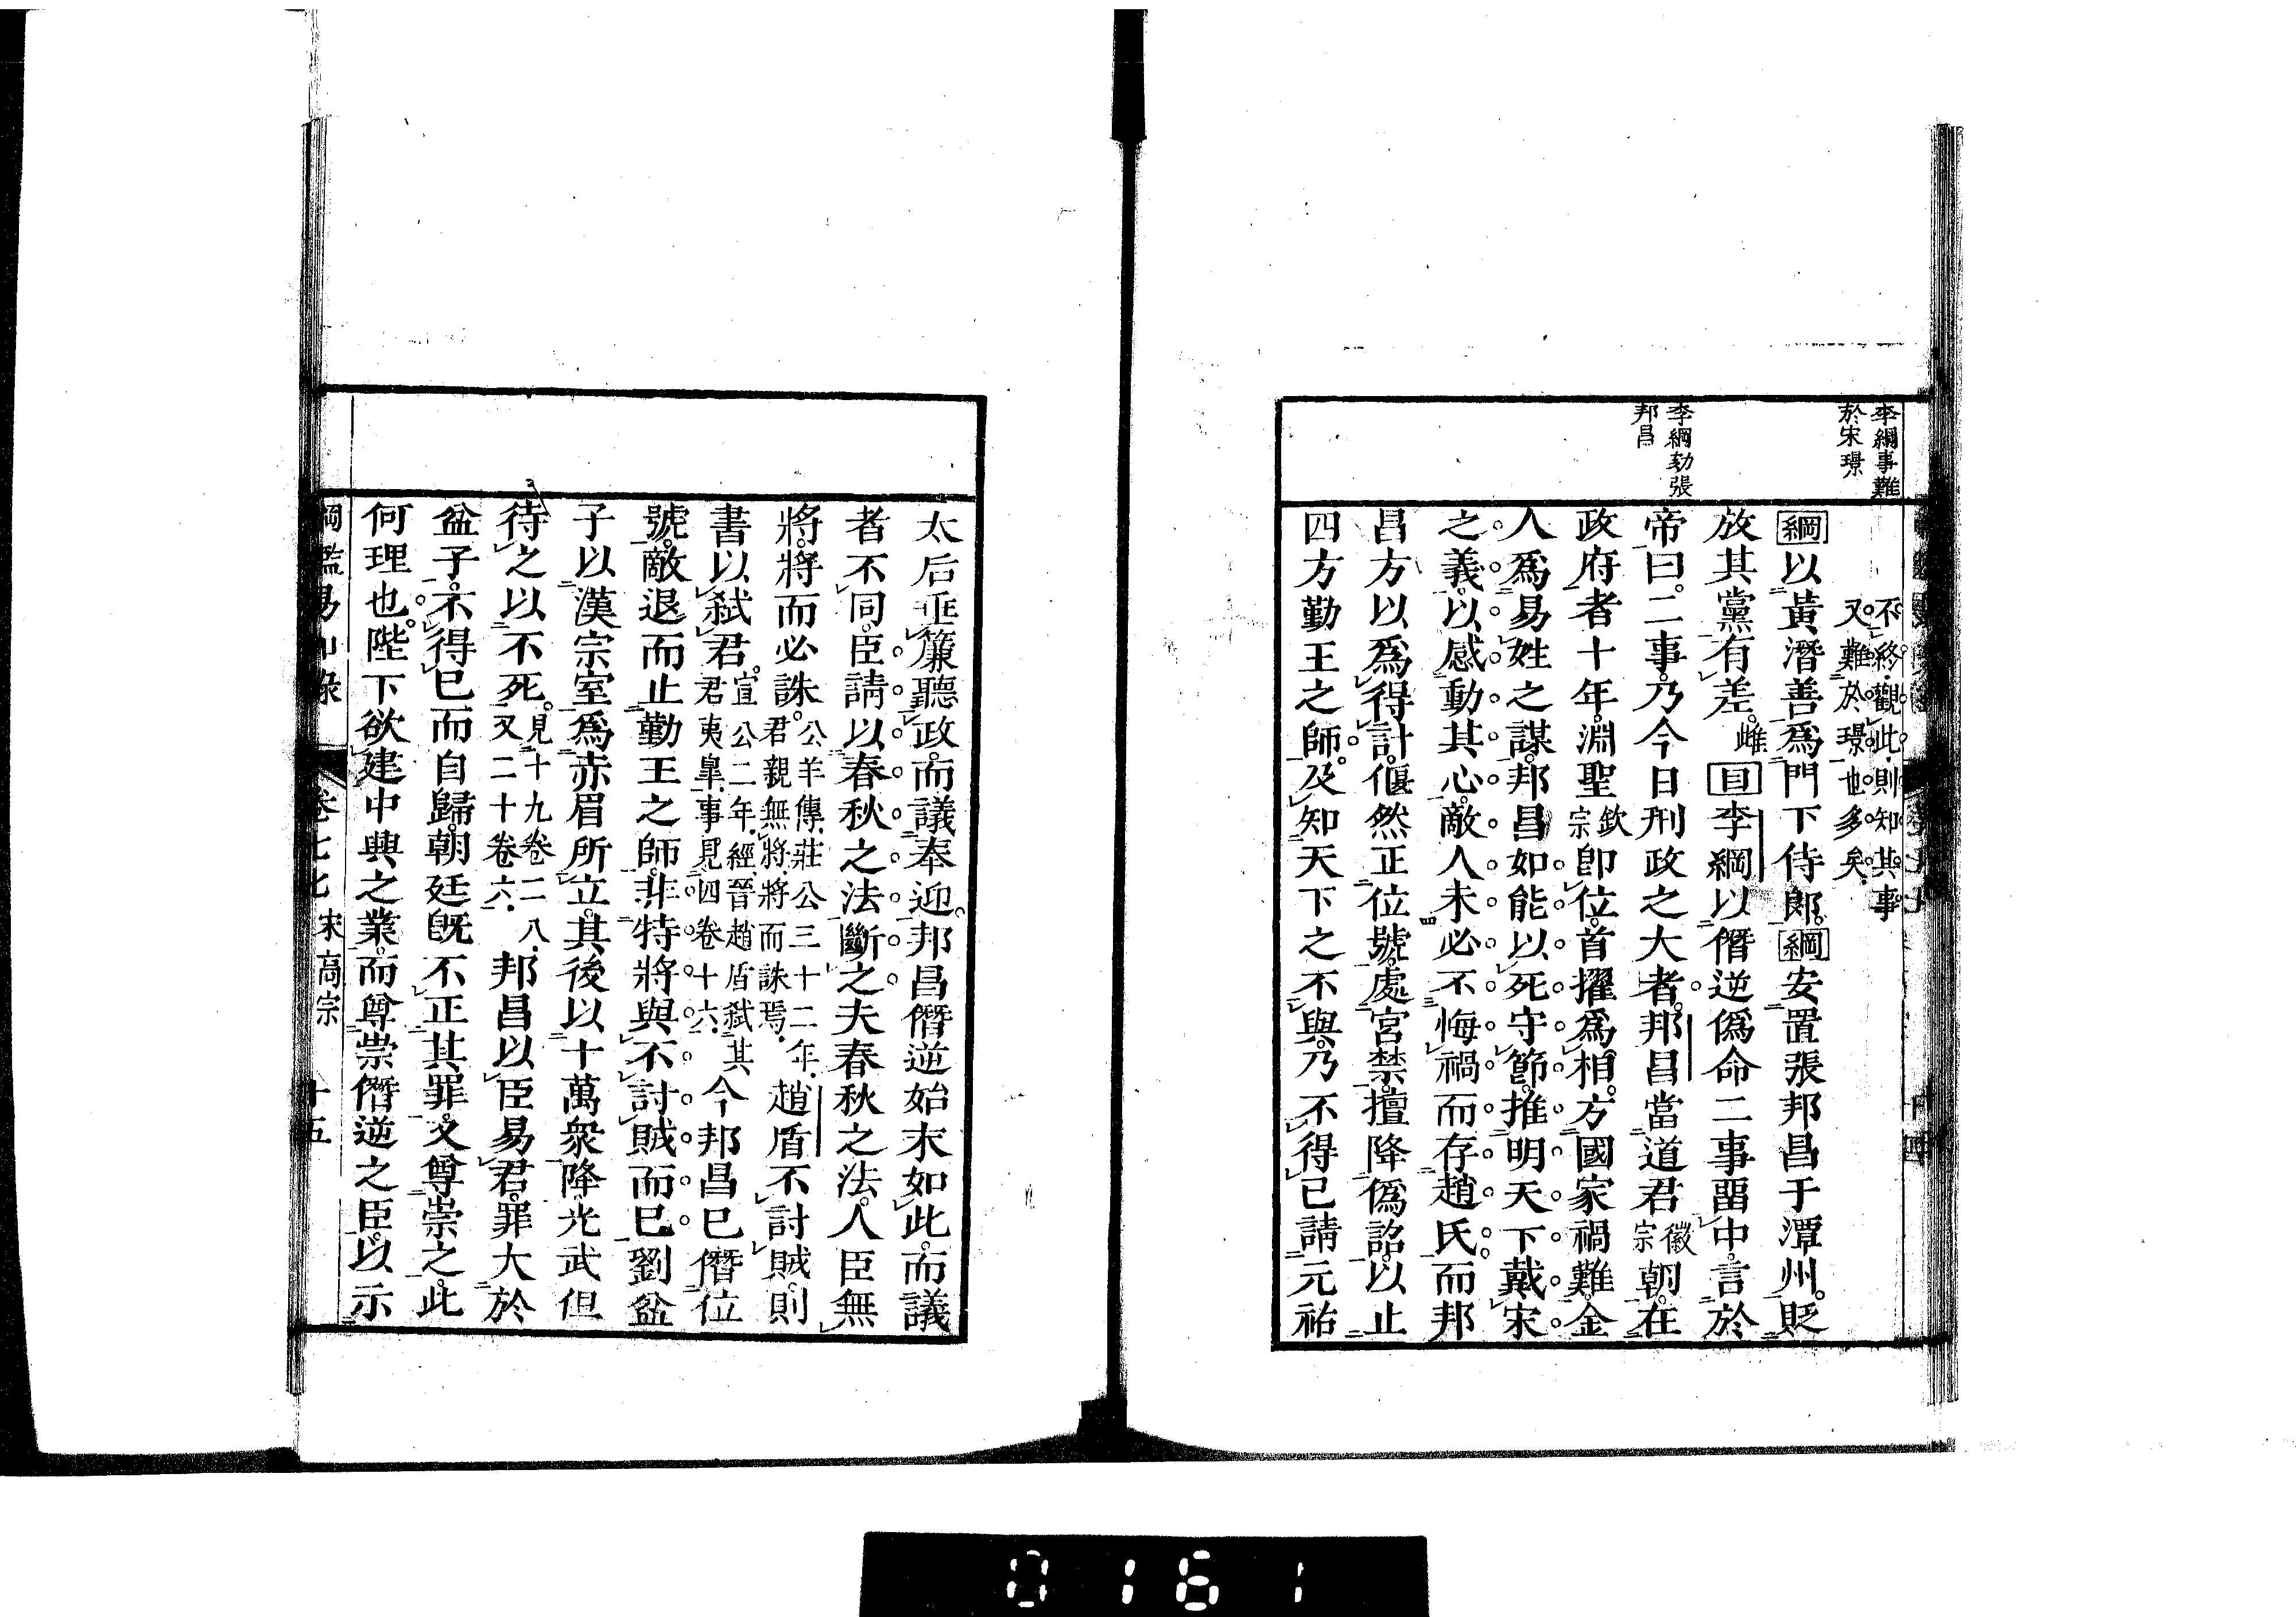 李綱事難
於宋璟
李綱劾張
邦昌
不終觀此則知其事
又難於璟也多矣
綱以黃潛善爲門下侍郎綱安置張邦昌于潭州貶
放其黨有差雌目李綱以僭逆僞命二事畱中言於
帝曰二事乃今日刑政之大者邦昌當道君徽宗朝在
政府者十年淵聖欽宗卽位首擢爲相方國家禍難金
人爲易姓之謀邦昌如能以死守節推明天下戴宋
之義以感動其心敵人未必不悔禍而存趙氏而邦
昌方以爲得計偃然正位號處宮禁擅降僞詔以止
四方勤王之師及知天下之不與乃不得已請元祐
太后垂簾聽政而議奉迎邦昌僭逆始末如此而議
者不同臣請以春秋之法斷之夫春秋之法人臣無
將將而必誅公羊傳莊公三十二年君親無將將而誅焉趙盾不討賊則
書以弑君宣公二年經晉趙盾弑其君夷皐事見四卷十六今邦昌已僭位
號敵退而止勤王之師非特將與不討賊而已劉盆
子以漢宗室爲赤眉所立其後以十萬衆降光武但
待之以不死見十九卷二八又二十卷六邦昌以臣易君罪大於
盆子不得已而自歸朝廷旣不正其罪又尊崇之此
何理也陛下欲建中興之業而尊崇僭逆之臣以示
綱鑑易知錄 卷七七 宋高宗 十五
0161